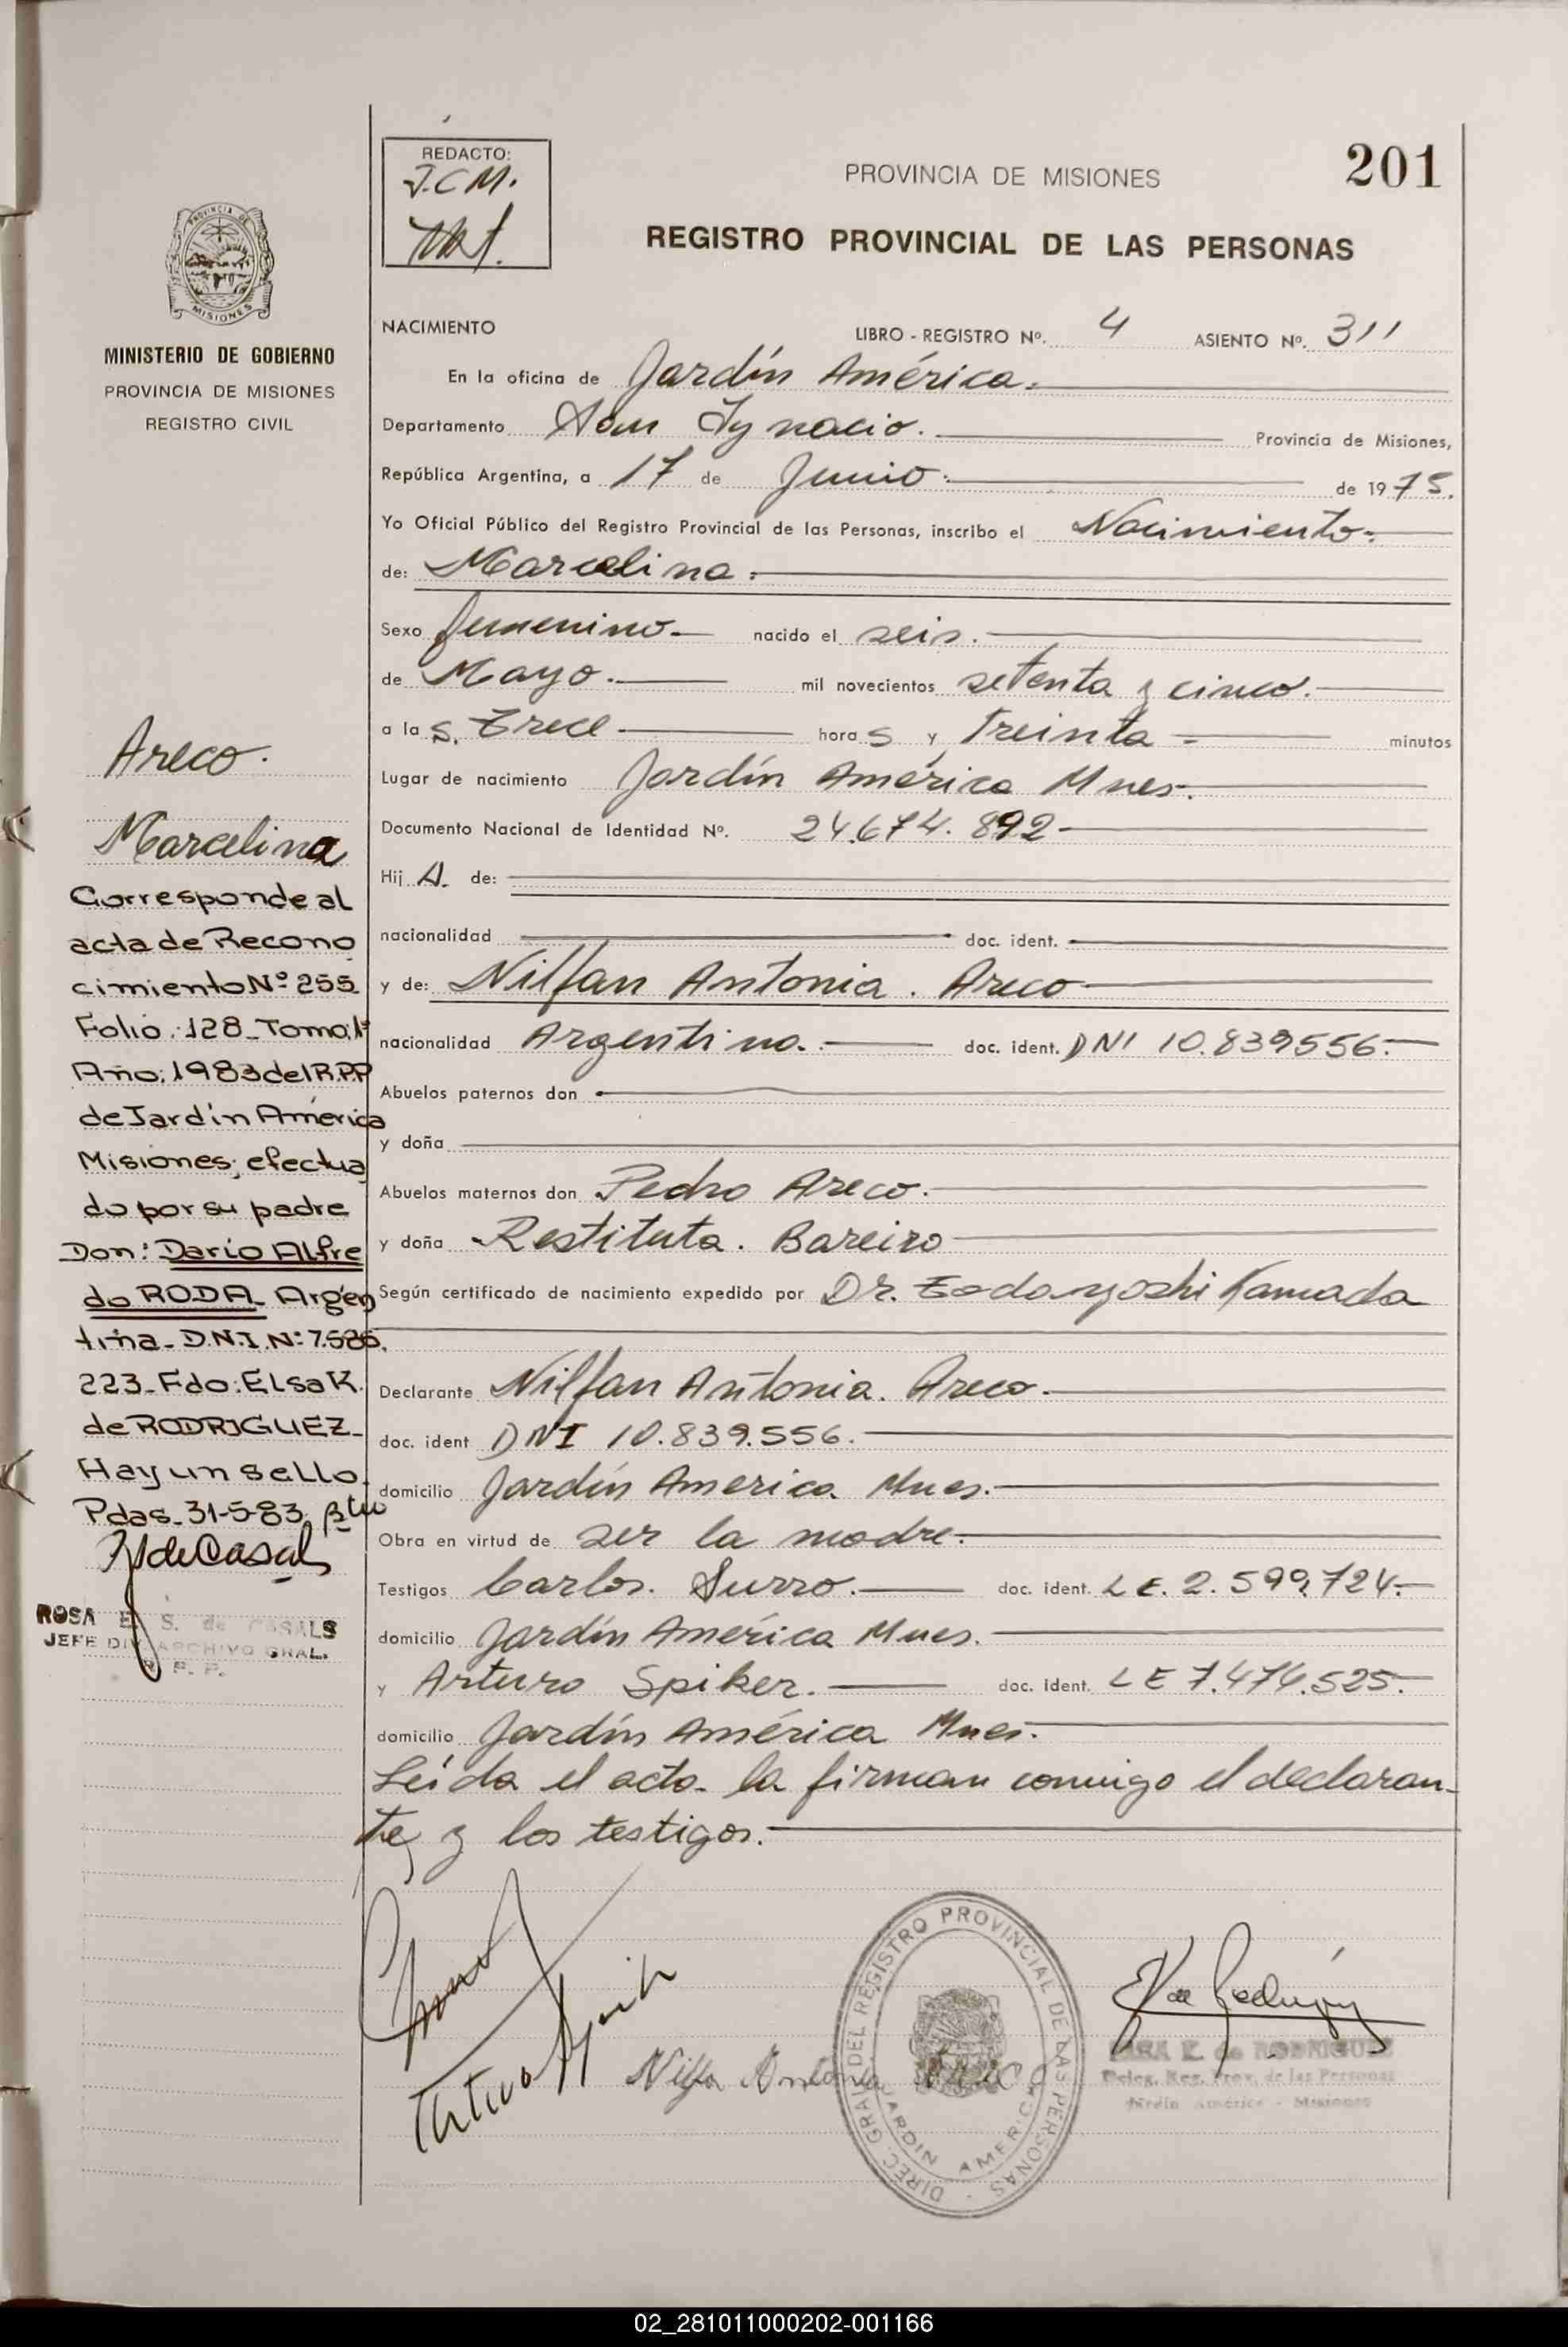 REDACTO:
J.C.M.
PROVINCIA DE MISIONES
201
REGISTRO PROVINCIAL DE LAS PERSONAS
PROVINCIA DE
MISIONES
MINISTERIO DE GOBIERNO
PROVINCIA DE MISIONES
REGISTRO CIVIL
NACIMIENTO
LIBRO - REGISTRO Nº. 4 ASIENTO Nº. 311
En la oficina de Jardín América.
Departamento San Ignacio. Provincia de Misiones,
República Argentina, a 17 de Junio. de 1975.
Yo Oficial Público del Registro Provincial de las Personas, inscribo el Nacimiento.
de: Marcelina.
Sexo femenino nacido el seis.
de Mayo. mil novecientos setenta y cinco.
a las. Trece horas y Treinta minutos
Lugar de nacimiento Jardín América Mnes.
Documento Nacional de Identidad Nº. 24.674.892
Hij A. de:
nacionalidad doc. ident.
y de: Nilfan Antonia. Areco
nacionalidad Argentina. doc. ident. DNI 10.839556.
Abuelos paternos don
y doña
Abuelos maternos don Pedro Areco.
y doña Restituta. Bareiro
Según certificado de nacimiento expedido por Dr. Kamada
Declarante Nilfan Antonia. Areco.
doc. ident DNI 10.839.556.
domicilio Jardín America. Mnes.
Obra en virtud de ser la madre.
Testigos Carlos. Surro. doc. ident. LE. 2.599.724.
domicilio Jardín América Mnes.
y Arturo Spiker. doc. ident. LE 7.474.525.
domicilio Jardín América Mnes.
Leída el acta. la firman conmigo el declaran-
te, y los testigos.
Areco.
Marcelina
Corresponde al
acta de Recono
cimiento Nº 255
Folio: 128_Tomo:1º
Año: 1983 del R.P.P
de Jardín América
Misiones; efectua
do por su padre
Don: Darío Alfre
do RODA_ Argen
tina_D.N.I.Nº 7.586.
223_Fdo: Elsa K.
de RODRIGUEZ_
Hay un sello.
Pdas_31-5-83
R S de Casals
ROSA E. S. de CASALS
JEFE DIV. ARCHIVO GRAL.
R. P. P.
Nilfa Antonia Areco
DIREC. GRAL. DEL REGISTRO PROVINCIAL DE LAS PERSONAS
JARDIN AMERICA
ELSA K. de RODRIGUEZ
Deleg. Reg. Prov. de las Personas
Jardín América - Misiones
02_281011000202-001166